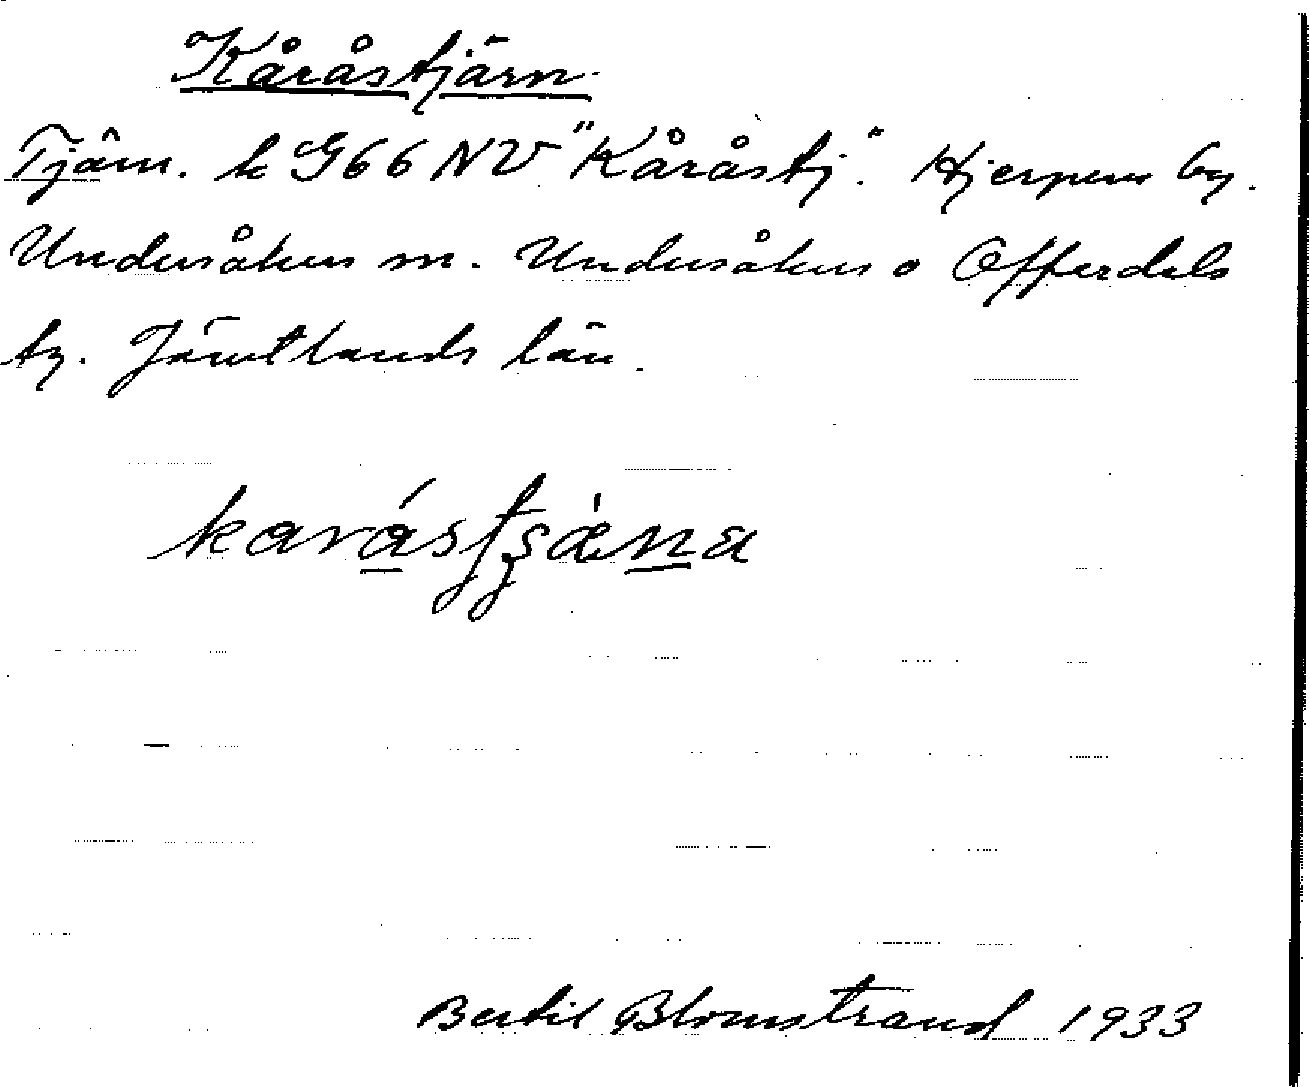 Kåråstjärn.
Tjärn. k G66 NV "Kåråstj." Hjerpens by.
Undersåkers sn. Undersåkers o Offerdals
tg. Jämtlands län.
Bertil Blomstrand 1933